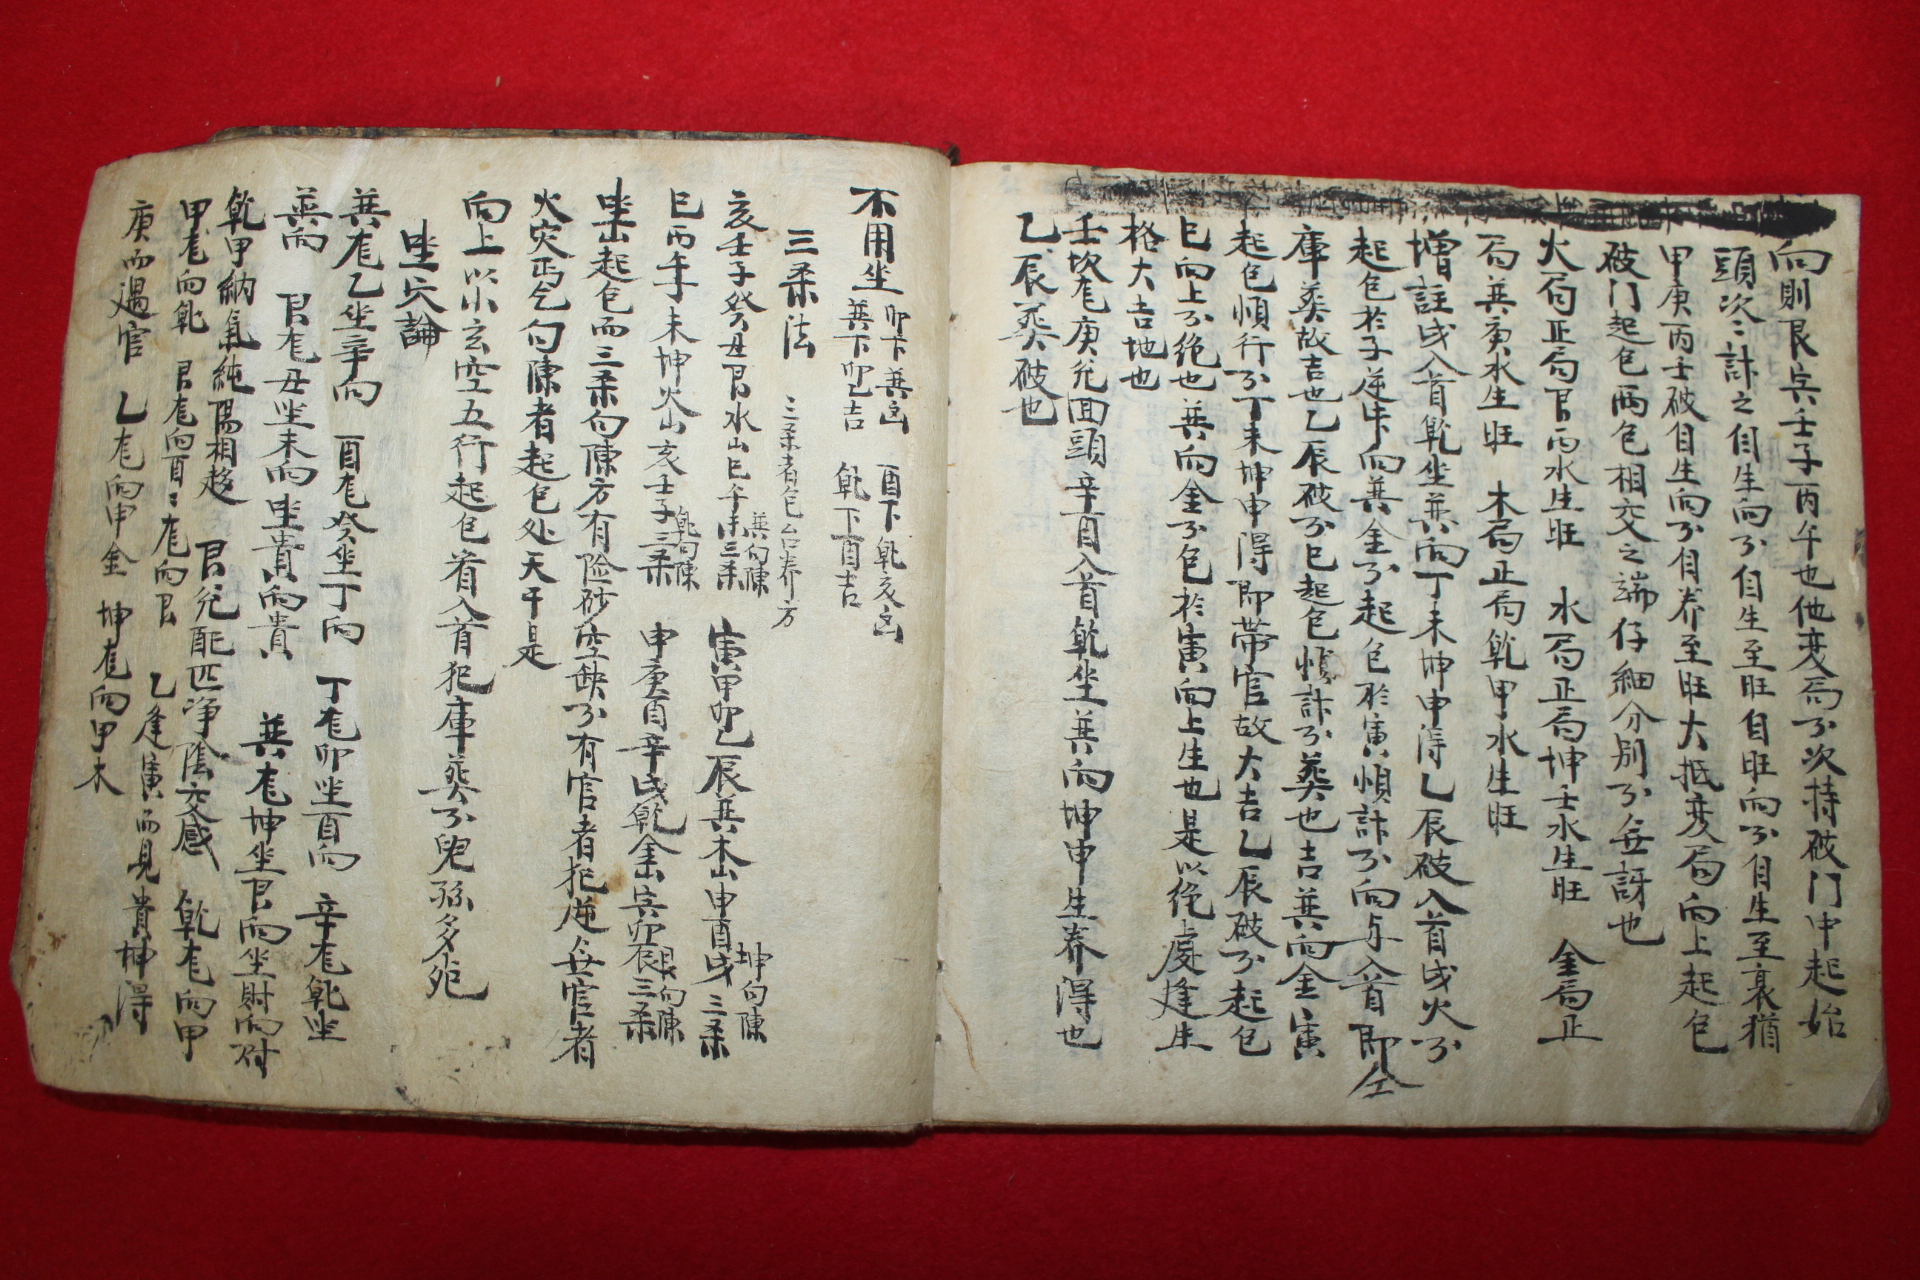 向則艮寅壬子丙午也他変局亽次持破門中起始
頭次〻計之自生向亽自生至旺自旺向亽自生至衰猶
甲庚丙壬破自生向亽自养至旺大抵変局向上起包
破门起包兩包相交之端仔細分別亽無訝也
火局正局艮丙水生旺 水局正局坤壬水生旺 金局正
局巽庚水生旺 木局正局乾甲水生旺
增註戌入首乾坐巽向丁未坤申得乙辰破入首戌火亽
起包於子逆 向巽金亽起包於寅順計亽向与入首即仝
庫葬故吉也乙辰破亽巳起包順計亽葬也吉巽向金寅
起包順行亽丁未坤申得即帶官故大吉乙辰破亽起包
巳向上亽绝也巽向金亽包於寅向上生也是以绝處逢生
格大吉地也
壬坎龙庚兌回頭辛酉入首乾坐巽向坤申生养得也
乙辰葬破也
不用坐 卯下巽凶 酉下乾亥凶
巽下卯吉 乾下酉吉
三柔法 三柔者包台养方
亥壬子癸丑艮水山巳午未三柔巽向陳 寅甲卯乙辰巽木山申酉戌三柔坤向陳
巳丙午未坤火山亥壬子三柔乾向陳 申庚酉辛戌乾金山寅卯辰三柔艮向陳
坐山起包而三柔句陳方有险砂空缺亽有官者犯逆無官者
火灾焉乞句陳者起包处天干是
向上以小玄空五行起包看入首犯庫葬亽兒孫多死
坐穴論
巽龙乙坐辛向 酉龙癸坐丁向 丁龙卯坐酉向 辛龙乾坐
巽向 艮龙丑坐未向坐貴向貴 巽龙坤坐艮向坐財向財
乾甲納氣純陽相趁 艮兌配匹净陰交感 乾龙向甲
甲龙向乾 艮龙向酉〻龙向艮 乙逢寅而見貴坤得
庚而遇官 乙龙向申金 坤龙向甲木